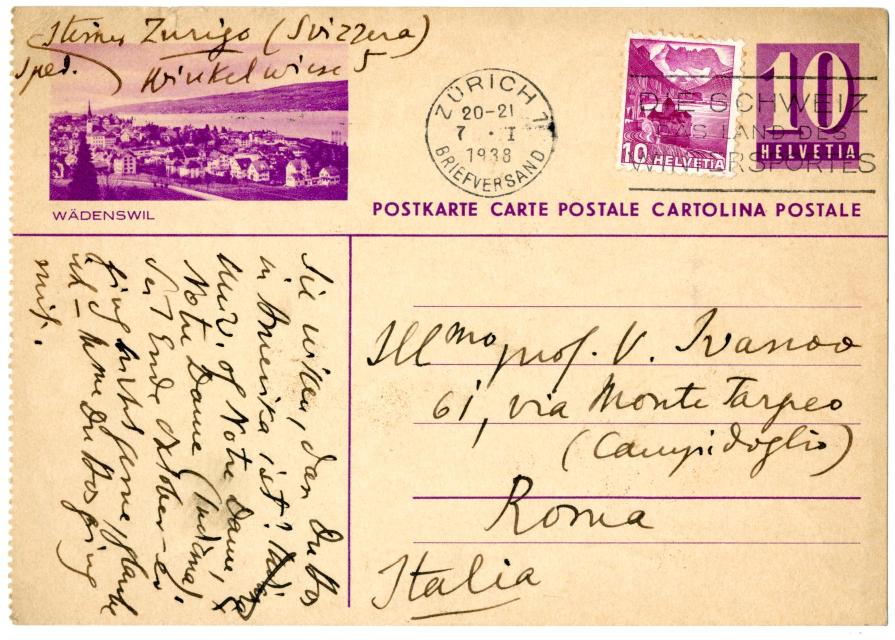 Steiner Zurigo (Svizzera)
Sped. Winkelwiese 5
WÄDENSWIL
ZÜRICH 1
20-21
7 · I
1938
BRIEFVERSAND
10 HELVETIA
DIE SCHWEIZ
DAS LAND DES
WINTERSPORTES
10
HELVETIA
POSTKARTE CARTE POSTALE CARTOLINA POSTALE
Sie wissen, dass Du Bos
in Amerika ist?
Univ. of Notre Dame,
Notre Dame (Indiana).
Seit Ende Oktober – er
ging nicht gerne, glaube
ich – Mme Du Bos ging
mit.
Illmo prof. V. Ivanov
61, via Monte Tarpeo
(Campidoglio)
Roma
Italia